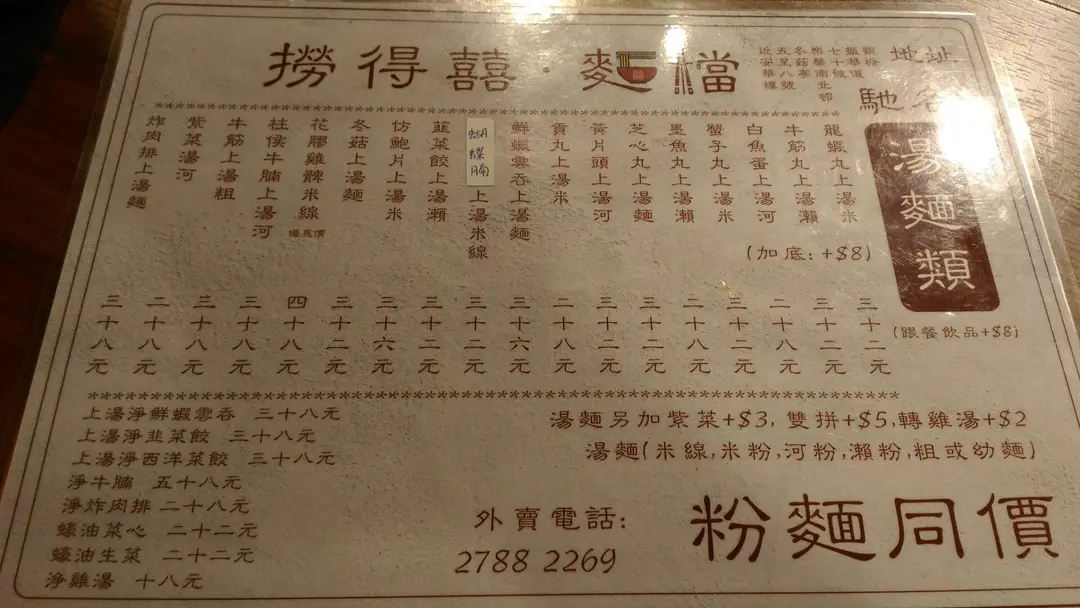 撈得囍·麵檔
地址
觀塘
振華道
七十號
樂華南北邨
冬菇亭
五至八號
近安華樓
湯麵類
(跟餐飲品+$8)
(加底:+$8)
龍蝦丸上湯米 三十二元
牛筋丸上湯瀨 三十二元
白魚蛋上湯河 二十八元
蟹子丸上湯米 三十二元
墨魚丸上湯瀨 二十八元
芝心丸上湯麵 三十二元
黃片頭上湯河 三十二元
貢丸上湯米 二十八元
鮮蝦雲吞上湯麵 三十六元
蝴蝶腩上湯米線 三十八元
韮菜餃上湯瀨 三十二元
仿鮑片上湯米 三十六元
冬菇上湯麵 三十二元
花膠雞髀米線 優惠價 四十八元
柱侯牛腩上湯河 三十八元
牛筋上湯粗 三十八元
紫菜湯河 二十八元
炸肉排上湯麵 三十八元
上湯淨鮮蝦雲吞 三十八元
上湯淨韭菜餃 三十八元
上湯淨西洋菜餃 三十八元
淨牛腩 五十八元
淨炸肉排 二十八元
蠔油菜心 二十二元
蠔油生菜 二十二元
淨雞湯 十八元
湯麵另加紫菜+$3, 雙拼+$5,轉雞湯+$2
湯麵(米線,米粉,河粉,瀨粉,粗或幼麵)
外賣電話:
2788 2269
粉麵同價